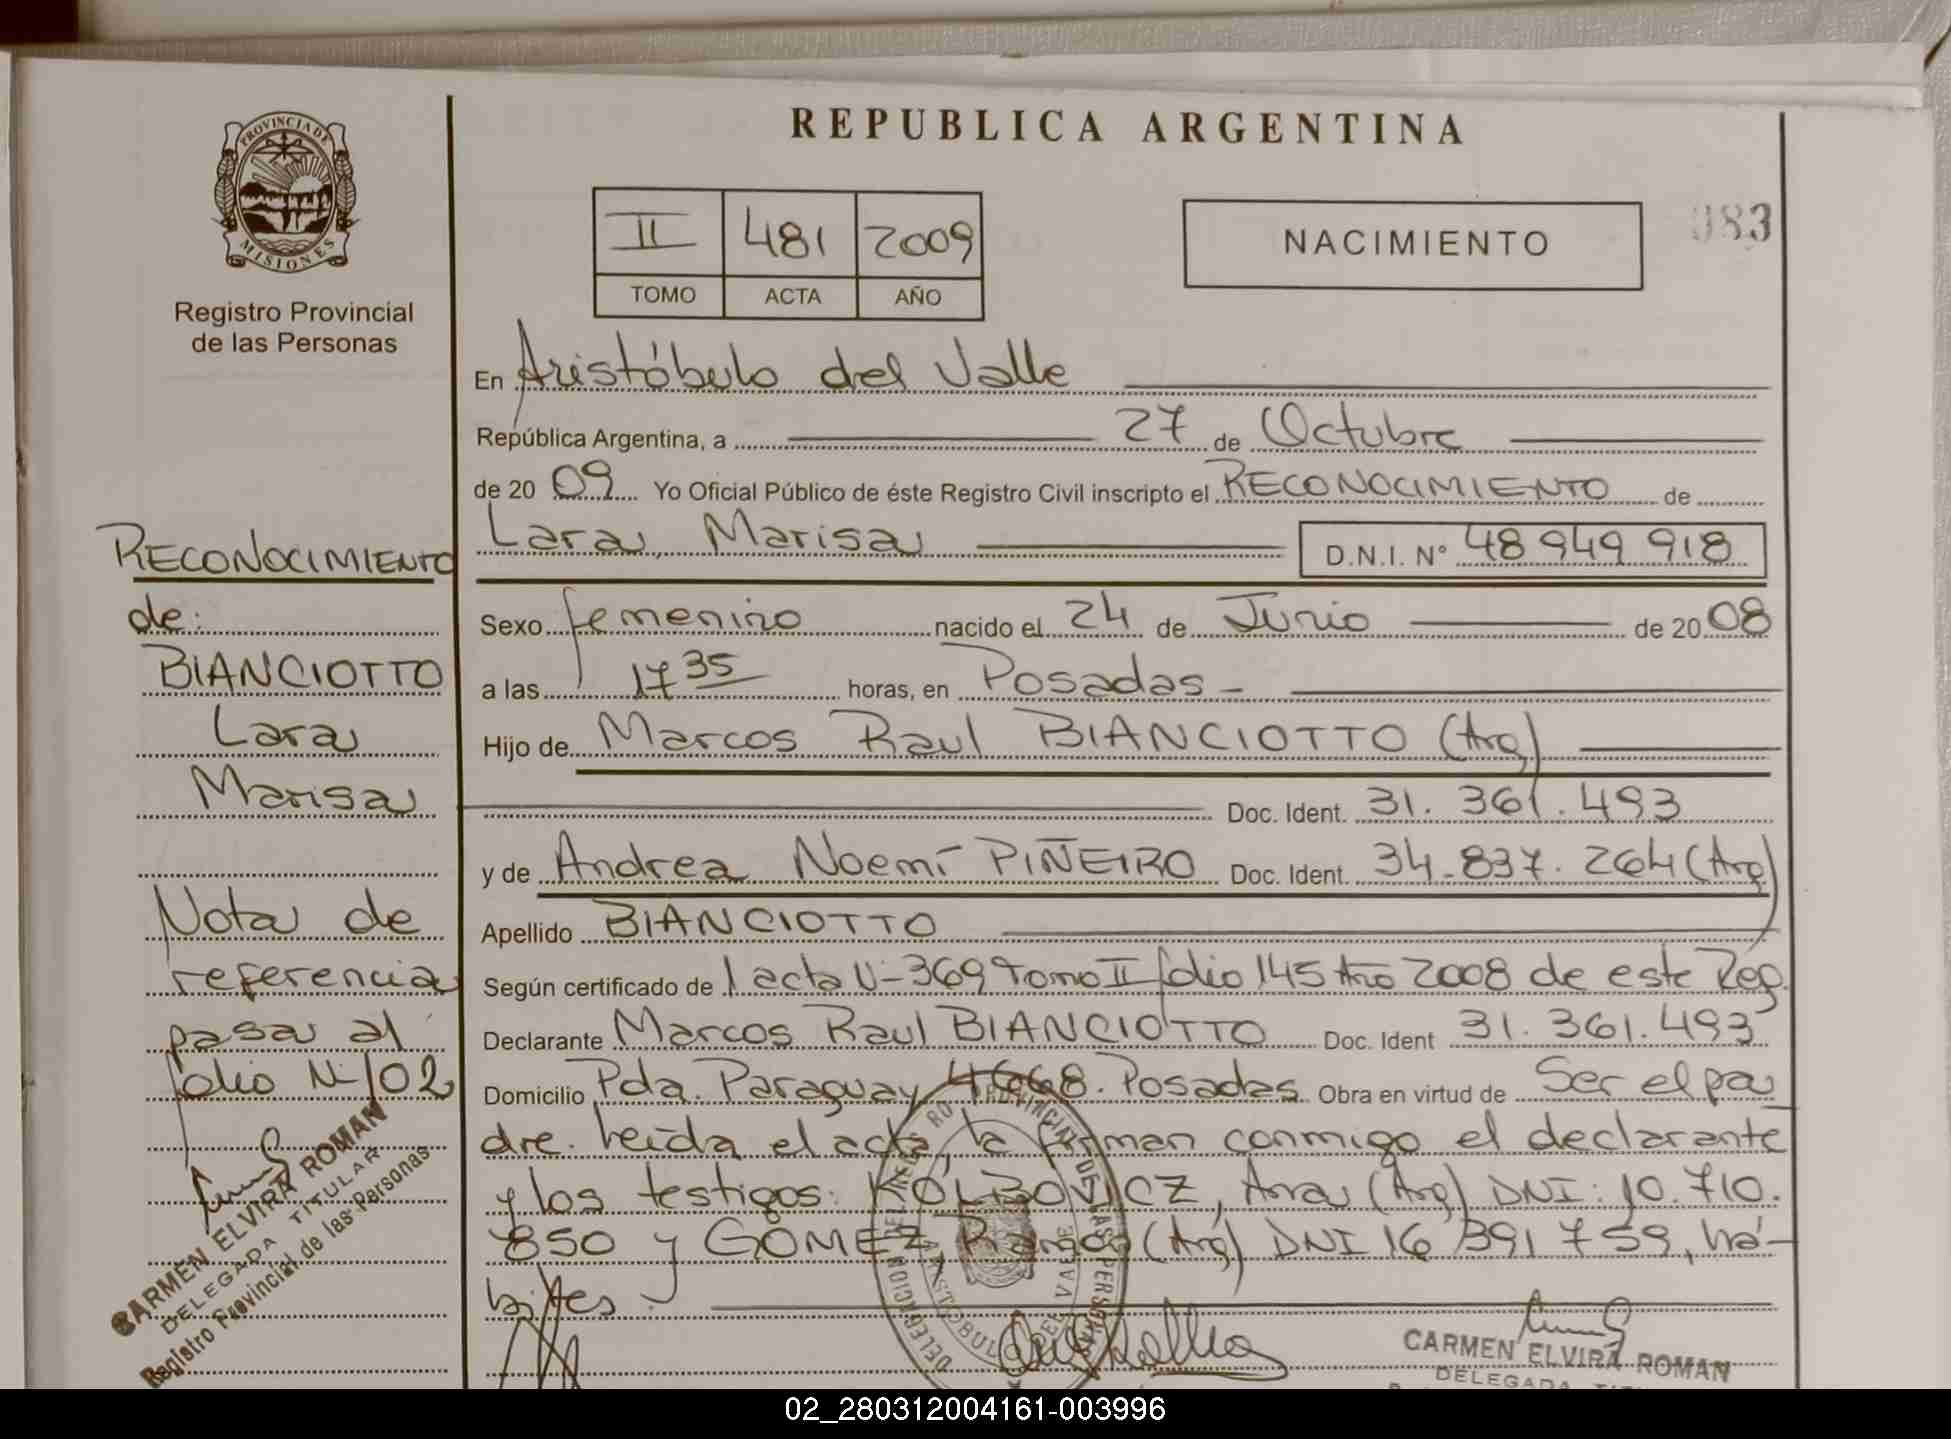 PROVINCIA DE
MISIONES
Registro Provincial
de las Personas
REPUBLICA ARGENTINA
II 481 2009
TOMO ACTA AÑO
NACIMIENTO
083
En Aristóbulo del Valle
República Argentina, a 27 de Octubre
de 20 09 Yo Oficial Público de éste Registro Civil inscripto el RECONOCIMIENTO de
Lara Marisa D.N.I. N° 48 949 918
Sexo femenino nacido el 24 de Junio de 20 08
a las 17 35 horas, en Posadas -
Hijo de Marcos Raul BIANCIOTTO (Arg)
Doc. Ident. 31. 361. 493
y de Andrea Noemí PIÑEIRO Doc. Ident. 34. 837. 264 (Arg)
Apellido BIANCIOTTO
Según certificado de l acta N- 369 Tomo II folio 145 Año 2008 de este Reg.
Declarante Marcos Raul BIANCIOTTO Doc. Ident 31. 361. 493
Domicilio Pda. Paraguay 4668. Posadas Obra en virtud de Ser el pa
dre. Leída el acta, la firman conmigo el declarante
y los testigos: KOLBOVICZ, Ana (Arg) DNI: 10. 710.
850 y GOMEZ Ramon (Arg) DNI 16 391 759, há-
biles.
RECONOCIMIENTO
de:
BIANCIOTTO
Lara
Marisa
Nota de
referencia
pasa al
folio N- 102
CARMEN ELVIRA ROMAN
DELEGADA TITULAR
Registro Provincial de las Personas
CARMEN ELVIRA ROMAN
DELEGADA
02_280312004161-003996